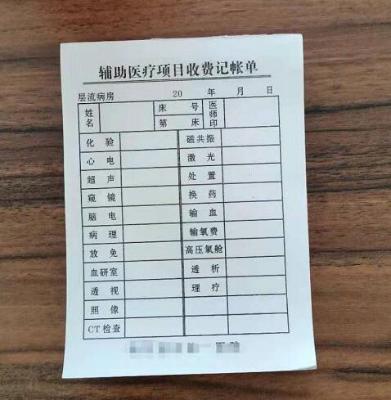 辅助医疗项目收费记帐单
层流病房 20 年 月 日
姓名 床号 第 床 医师印
化验 磁共振
心电 激光
超声 处置
窥镜 换药
脑电 输血
病理 输氧费
放免 高压氧舱
血研室 透析
透视 理疗
照像
CT检查